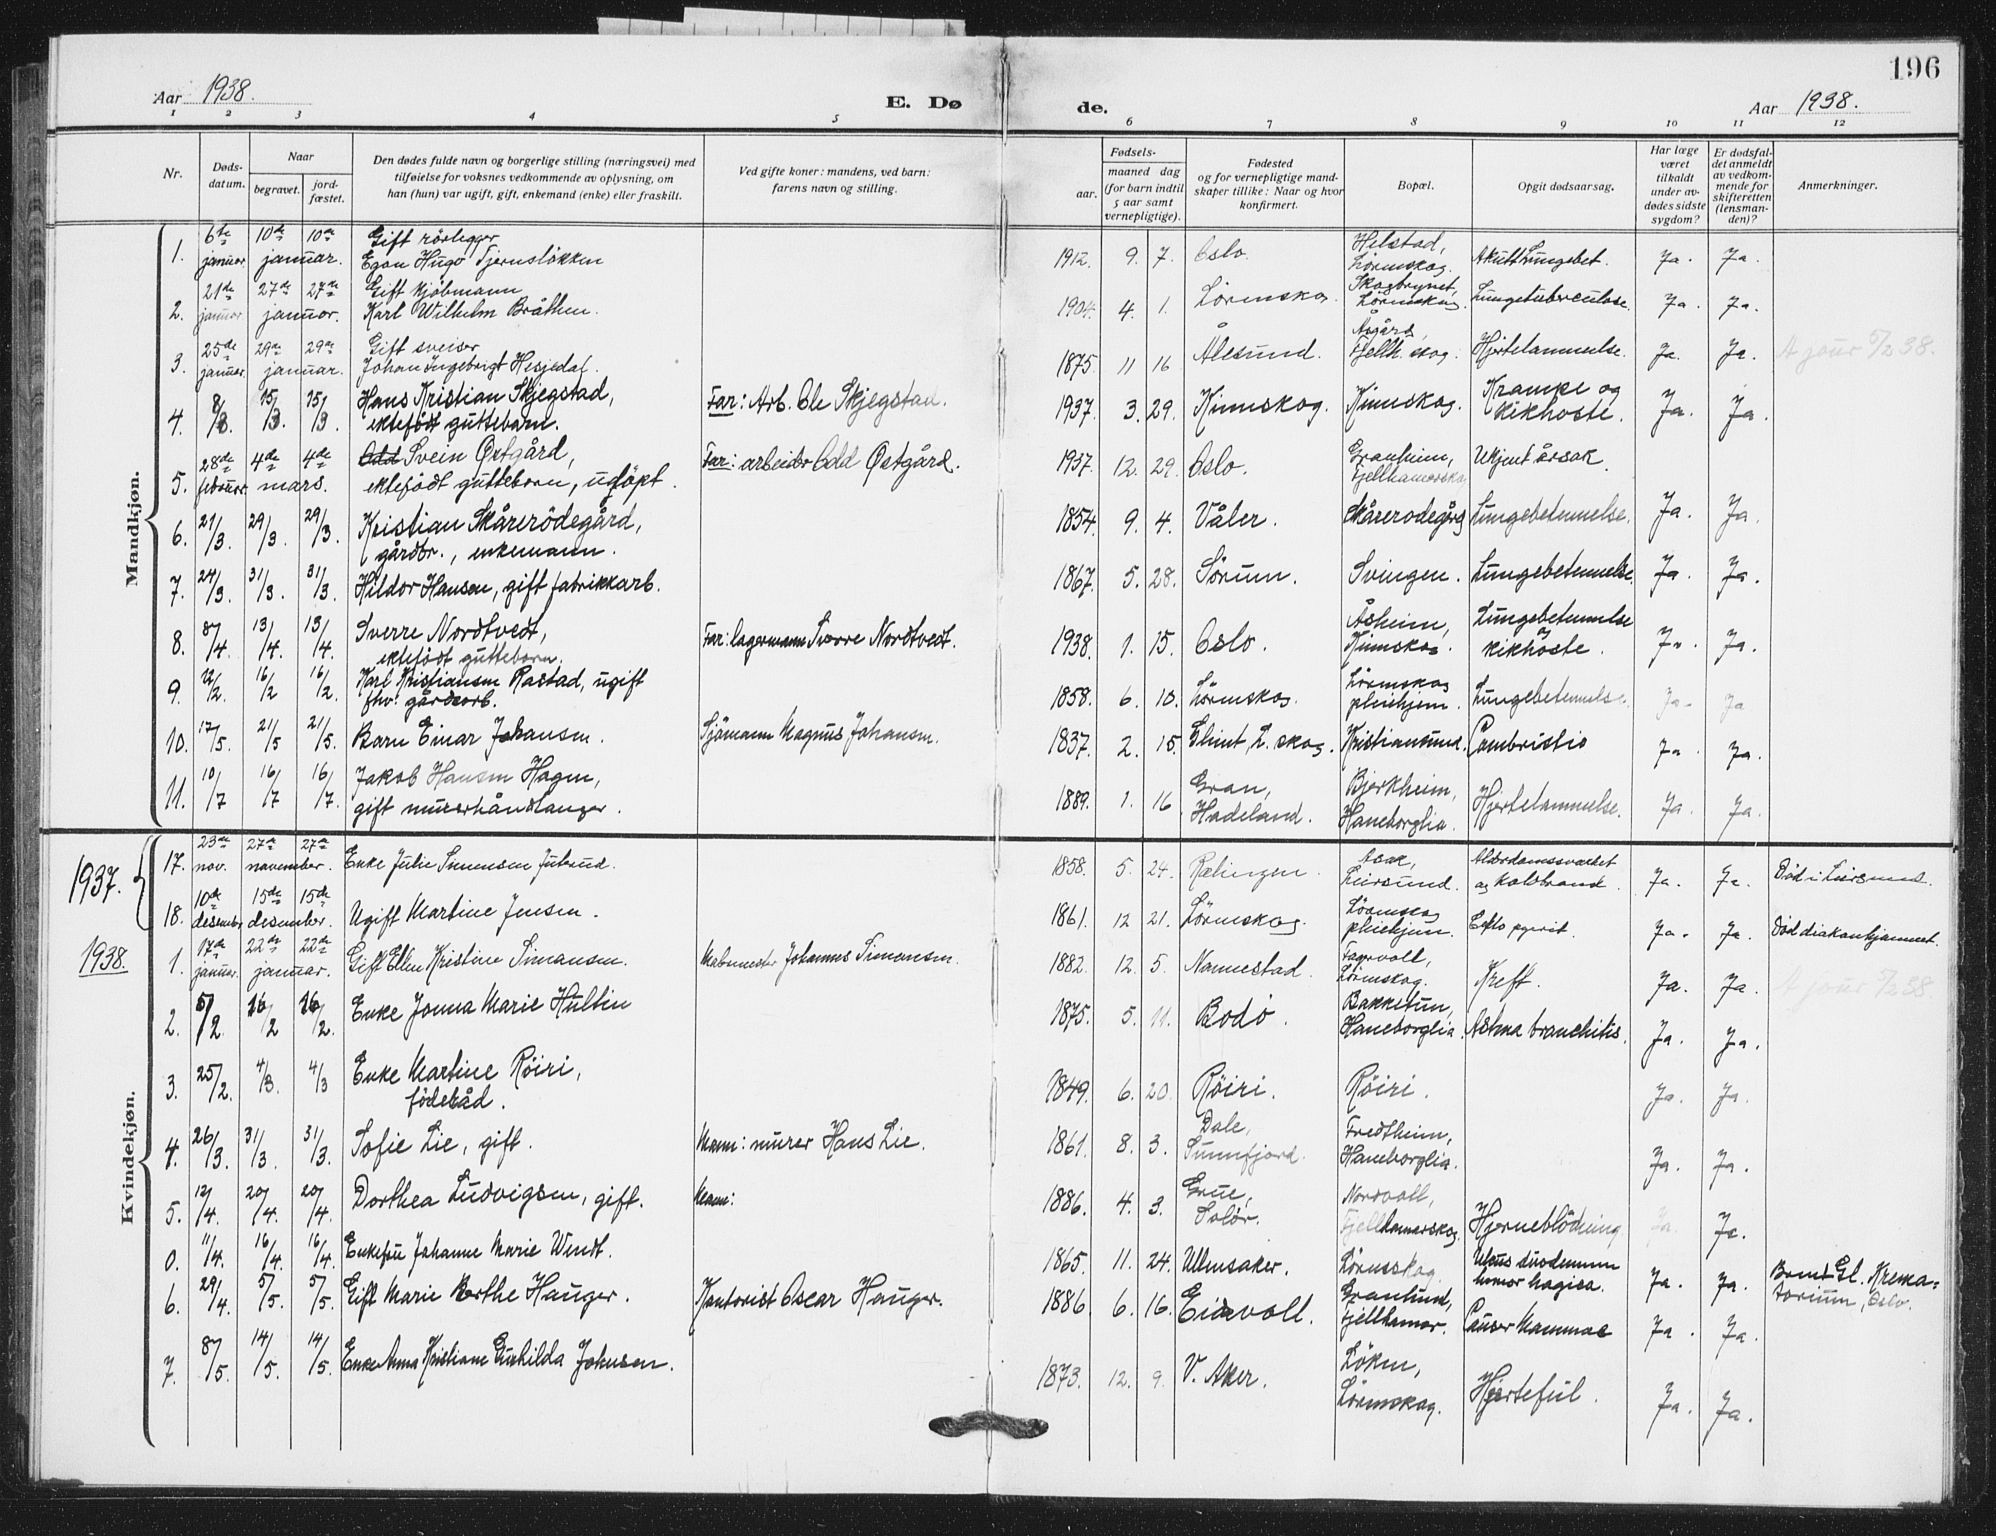 196
Aar 1938.
E. Dø de.
Aar 1938.
1 2 3 4 5 6 7 8 9 10 11 12
Nr.
Døds-
datum.
Naar
begravet.
jord-
fæstet.
Den dødes fulde navn og borgerlige stilling (næringsvei) med
tilføielse for voksnes vedkommende av oplysning, om
han (hun) var ugift, gift, enkemand (enke) eller fraskilt.
Ved gifte koner: mandens, ved barn:
farens navn og stilling.
Fødsels-
aar.
maaned dag
(for barn indtil
5 aar samt
vernepligtige).
Fødested
og for vernepligtige mand-
skaper tillike: Naar og hvor
konfirmert.
Bopæl.
Opgit dødsaarsag.
Har læge
været
tilkaldt
under av-
dødes sidste
sygdom?
Er dødsfal-
det anmeldt
av vedkom-
mende for
skifteretten
(lensman-
den)?
Anmerkninger.
Mandkjøn.
1. 6te januar 10de 10de januar. Gift rörlegger
Egon Hugo Tjernsløkken 1912. 9. 7. Oslo. Helstad,
Lörenskog. Akutt Lungebet. Ja. Ja.
2. 21de januar 27de 27de januar. Gift kjöbmann
Karl Wilhelm Bråthen. 1904. 4. 1. Lörenskog Skogbrynet,
Lörenskog Lungetuberculose. Ja. Ja.
3. 25de januar. 29de 29de januar. Gift sveiser
Johan Ingebrigt Hesjedal. 1875. 11 16 Ålesund. Åsgård,
Fjellh. skog. Hjertelammelse. Ja. Ja. A jour 5/2 38.
4. 8/3. 15/3. 15/3. Hans Kristian Skjegstad,
ektefödt guttebarn. Far: Arb. Ole Skjegstad. 1937. 3. 29. Kinnskog. Kinnskog. Krampe og
kikhoste. Ja. Ja.
5. 28de februar 4de 4de mars. Odd Svein Østgård,
ektefödt guttebarn, udöpt. Far: arbeider Odd Østgård. 1937. 12. 29. Oslo. Granheim,
Fjellhamarskog Ukjent årsak.
6. 21/3. 29/3. 29/3. Kristian Skårerödegård,
gårdbr., enkemann. 1854. 9. 4. Våler. Skårerödegård Lungebetennelse. Ja. Ja.
7. 24/3. 31/3. 31/3. Hildor Hansen, gift fabrikkarb. 1867. 5. 28. Sörum. Svingen. Lungebetennelse Ja. Ja.
8. 8/4. 13/4. 13/4. Sverre Nordtvedt,
ektefödt guttebarn. Far: lagermann Sverre Nordtvedt. 1938. 1. 15. Oslo. Åsheim,
Kinnskog. Lungebetennelse
kikhoste. Ja. Ja.
9. 12/2. 16/2 16/2. Karl Kristiansen Rastad, ugift
fhv. gårdsarb. 1858. 6. 10. Lörenskog. Lörenskog
pleiehjem. Lungebetennelse. Ja. Ja
10. 17/5. 21/5 21/5. Barn Einar Johansen. Sjömann Magnus Johansen. 1837. 2. 15. L. skog. Kristiansund. Ja. Ja.
11. 10/7 16/7 16/7. Jakob Hansen Hagen,
gift murerhåndlanger. 1889. 1. 16 Gran,
Hadeland. Bjerkheim,
Haneborglia. Hjertelammelse. Ja. Ja.
Kvindekjøn.
1937.
17. 23de nov. 27de 27de november. Enke Julie Simensen Juterud. 1858. 5. 24. Rælingen. Asak,
Leirsund. Alderdomssvækket
og koldbrand. Ja. Ja. Död i Leirsund.
18. 10de desember 15de 15de desember. Ugift Martine Jensen. 1861. 12 21. Lörenskog. Lörenskog
pleiehjem. Ja. Ja. Död diakonhjemmet.
1938.
1. 17de januar. 22de 22de januar. Gift Ellen Kristine Simensen. Johannes Simensen. 1882. 12. 5. Nannestad. Fagervoll,
Lörenskog. Kreft. Ja. Ja. A jour 5/2 38
2. 5/2 16/2 16/2. Enke Jonna Marie Hultin 1875. 5. 11. Bodö. Bakketun,
Haneborglia. Astma branchitis. Ja. Ja.
3. 25/2. 4/3. 4/3 Enke Martine Röiri,
föderåd. 1849. 6. 20. Röiri. Röiri. Ja. Ja.
4. 26/3. 31/3. 31/3. Sofie Lie, gift. Mann: murer Hans Lie. 1861. 8. 3. Dale,
Sunnfjord. Fredheim,
Haneborglia. Ja. Ja.
5. 12/4. 20/4. 20/4. Dorthea Ludvigsen, gift. Mann: 1886. 4. 3. Grue,
Solör. Nordvoll,
Fjellhamarskog Hjerneblödning Ja. Ja.
0. 11/4. 16/4. 16/4. Enkefru Johanne Marie Wendt. 1865. 11. 24. Ullensaker. Lörenskog Ulcus duodenum
hagica. Ja. Ja. Brent Gl. Krema-
torium, Oslo.
6. 29/4. 5/5. 5/5. Gift Marie Berthe Hauger. Kontorist Oscar Hauger. 1886 6. 16. Eidsvoll. Granlund,
Fjellhamar. Cancer Mammae Ja. Ja.
7. 8/5. 14/5. 14/5. Enke Anna Kristiane Gunhilda Johnsen. 1873. 12. 9. V. Aker. Löken,
Lörenskog. Hjertefeil. Ja. Ja.